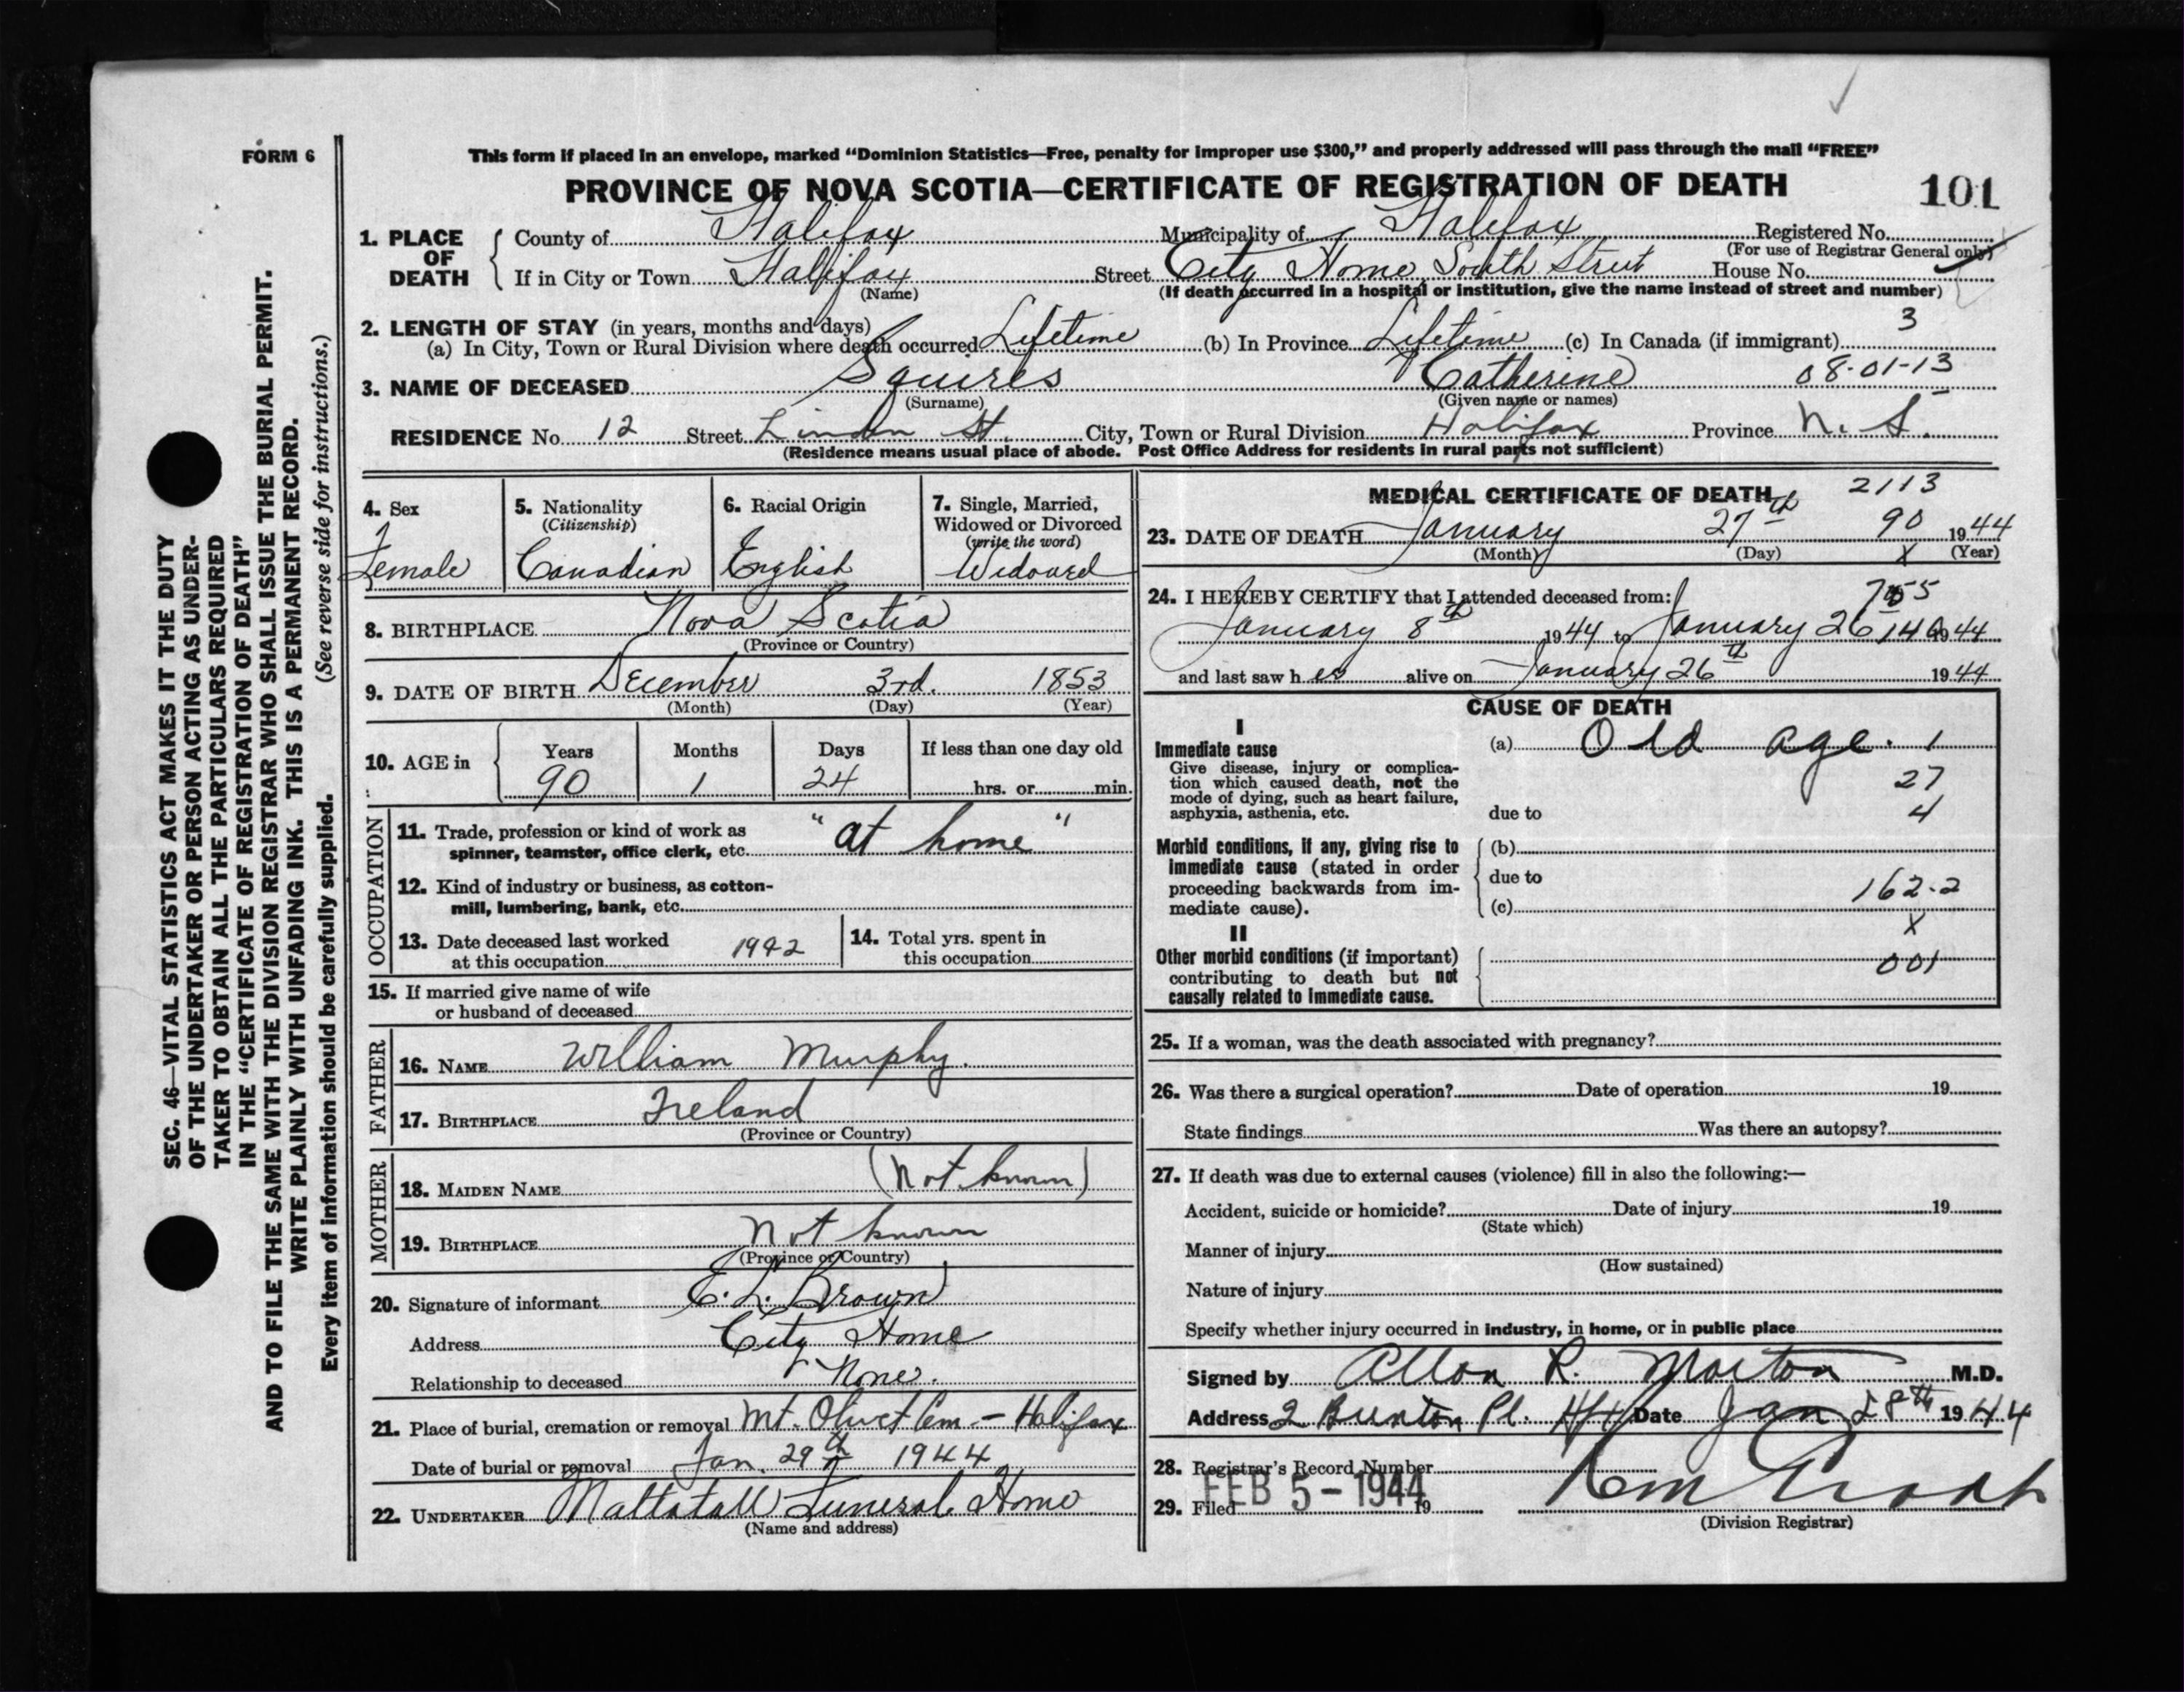 FORM 6
This form if placed in an envelope, marked “Dominion Statistics—Free, penalty for improper use $300,” and properly addressed will pass through the mail “FREE”
PROVINCE OF NOVA SCOTIA—CERTIFICATE OF REGISTRATION OF DEATH 101
1. PLACE OF DEATH
County of Halifax Municipality of Halifax Registered No.
(For use of Registrar General only)
If in City or Town Halifax Street City Home South Street House No.
(Name) (If death occurred in a hospital or institution, give the name instead of street and number)
2. LENGTH OF STAY (in years, months and days) 3
(a) In City, Town or Rural Division where death occurred Lifetime (b) In Province Lifetime (c) In Canada (if immigrant)
3. NAME OF DECEASED Squires Catherine 08-01-13
(Surname) (Given name or names)
RESIDENCE No. 12 Street Linden St. City, Town or Rural Division Halifax Province N. S.
(Residence means usual place of abode. Post Office Address for residents in rural parts not sufficient)
4. Sex
Female
5. Nationality
(Citizenship)
Canadian
6. Racial Origin
English
7. Single, Married,
Widowed or Divorced
(write the word)
Widowed
8. BIRTHPLACE Nova Scotia
(Province or Country)
9. DATE OF BIRTH December 3rd. 1853
(Month) (Day) (Year)
10. AGE in
Years Months Days If less than one day old
90 1 24 hrs. or min.
OCCUPATION
11. Trade, profession or kind of work as
spinner, teamster, office clerk, etc. "at home"
12. Kind of industry or business, as cotton-
mill, lumbering, bank, etc.
13. Date deceased last worked
at this occupation 1942
14. Total yrs. spent in
this occupation
15. If married give name of wife
or husband of deceased
FATHER
16. NAME William Murphy.
17. BIRTHPLACE Ireland
(Province or Country)
MOTHER
18. MAIDEN NAME (Not known)
19. BIRTHPLACE Not known
(Province or Country)
20. Signature of informant E. L. Brown
Address City Home
Relationship to deceased None.
21. Place of burial, cremation or removal Mt. Olivet Cem - Halifax
Date of burial or removal Jan. 29th 1944
22. UNDERTAKER Mattatall Funeral Home
(Name and address)
MEDICAL CERTIFICATE OF DEATH 2113
23. DATE OF DEATH January 27th 90 1944
(Month) (Day) X (Year)
24. I HEREBY CERTIFY that I attended deceased from:
January 8th 1944 to January 26 1944
and last saw her alive on January 26th 1944
CAUSE OF DEATH
I
Immediate cause (a) Old age. 1
Give disease, injury or complica-
tion which caused death, not the 27
mode of dying, such as heart failure,
asphyxia, asthenia, etc. due to 4
Morbid conditions, if any, giving rise to (b)
immediate cause (stated in order
proceeding backwards from im- due to 162.2
mediate cause). (c)
X
II
Other morbid conditions (if important)
contributing to death but not 001
causally related to immediate cause.
25. If a woman, was the death associated with pregnancy?
26. Was there a surgical operation? Date of operation 19
State findings Was there an autopsy?
27. If death was due to external causes (violence) fill in also the following:—
Accident, suicide or homicide? Date of injury 19
(State which)
Manner of injury
(How sustained)
Nature of injury
Specify whether injury occurred in industry, in home, or in public place
Signed by Allan R. Morton M.D.
Address 2 Date Jan 28th 1944
28. Registrar's Record Number
29. Filed FEB 5 - 1944 19
(Division Registrar)
SEC. 46—VITAL STATISTICS ACT MAKES IT THE DUTY
OF THE UNDERTAKER OR PERSON ACTING AS UNDER-
TAKER TO OBTAIN ALL THE PARTICULARS REQUIRED
IN THE “CERTIFICATE OF REGISTRATION OF DEATH”
AND TO FILE THE SAME WITH THE DIVISION REGISTRAR WHO SHALL ISSUE THE BURIAL PERMIT.
WRITE PLAINLY WITH UNFADING INK. THIS IS A PERMANENT RECORD.
Every item of information should be carefully supplied. (See reverse side for instructions.)